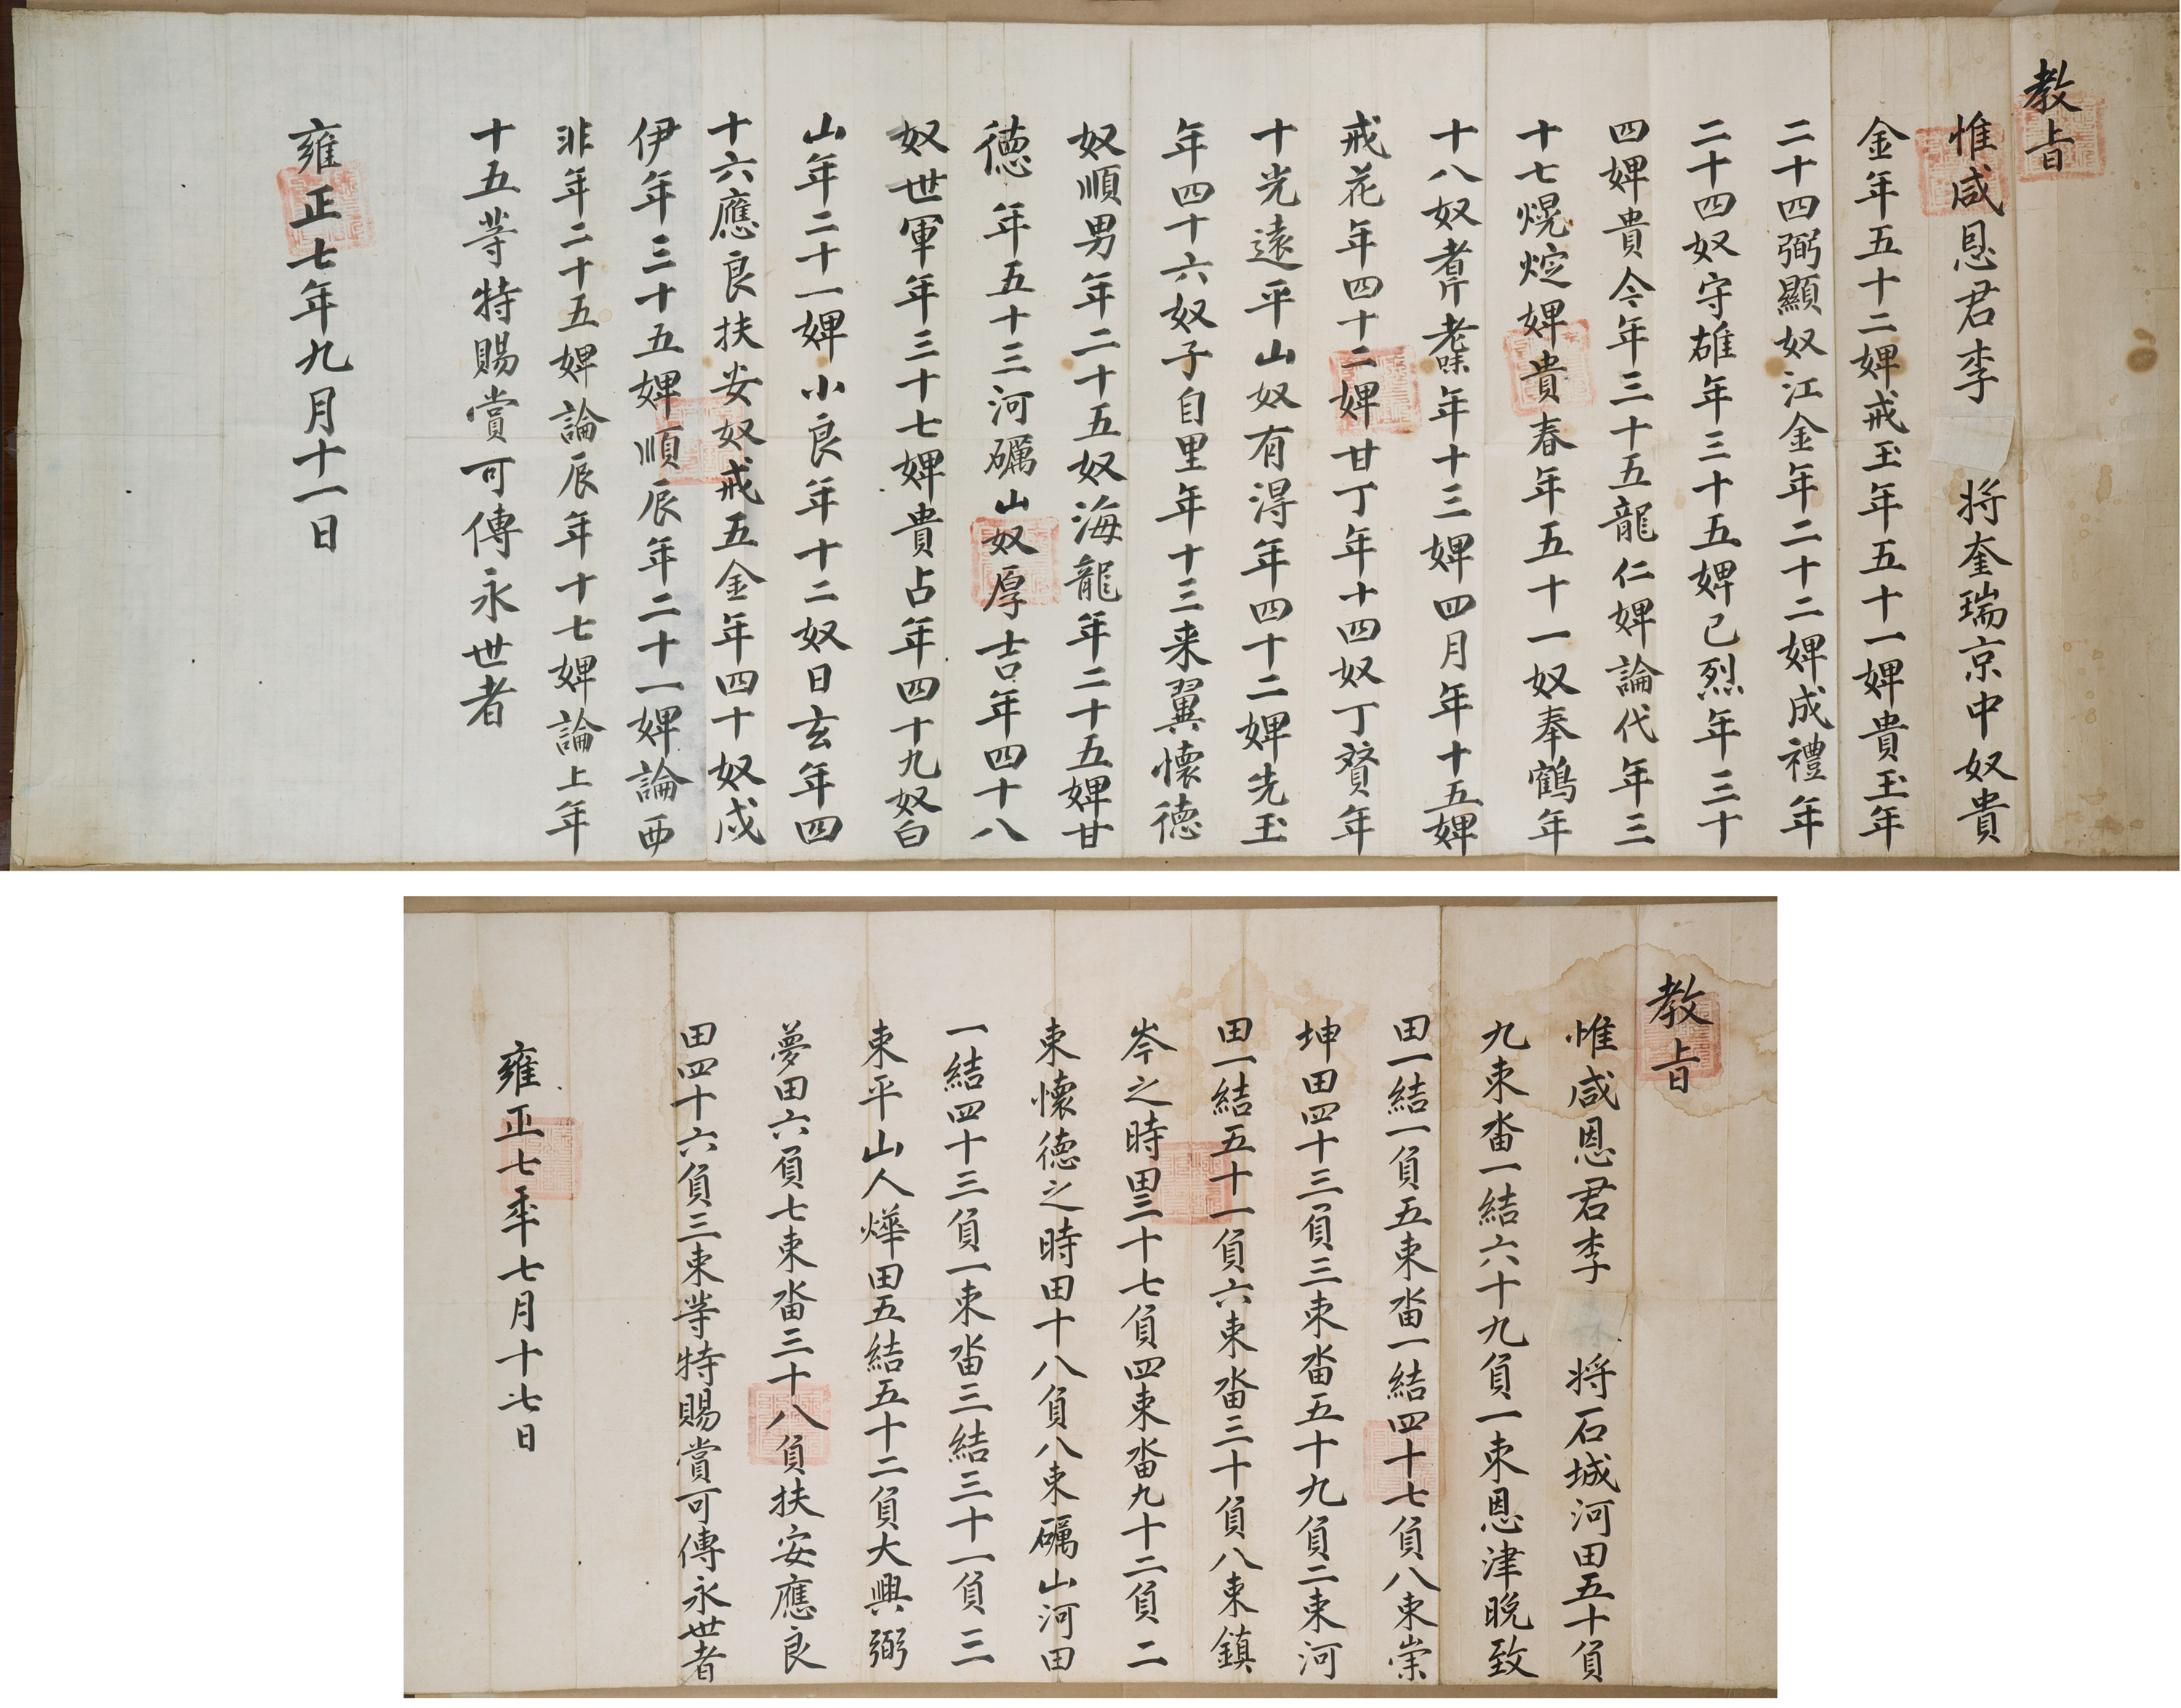 教旨
惟咸恩君李 将奎瑞京中奴貴
金年五十二婢戒玉年五十一婢貴玉年
二十四弼顯奴江金年二十二婢成禮年
二十四奴守雄年三十五婢已烈年三十
四婢貴今年三十五龍仁婢論代年三
十七熀焢婢貴春年五十一奴奉鶴年
十八奴耆年十三婢四月年十五婢
戒花年四十二婢甘丁年十四奴丁賛年
十光遠平山奴有淂年四十二婢先玉
年四十六奴子自里年十三来翼懷德
奴順男年二十五奴海龍年二十五婢甘
德年五十三河礪山奴厚吉年四十八
奴世軍年三十七婢貴占年四十九奴白
山年二十一婢小良年十二奴日玄年四
十六應良扶安奴戒五金年四十奴戍
伊年三十五婢順辰年二十一婢論西
非年二十五婢論辰年十七婢論上年
十五等特賜賞可傳永世者
雍正七年九月十一日
教旨
惟咸恩君李 将石城河田五十負
九束畓一結六十九負一束恩津晩致
田一結一負五束畓一結四十七負八束崇
坤田四十三負三束畓五十九負二束河
田一結五十一負六束畓三十負八束鎮
岑之時田三十七負四束畓九十二負二
束懷德之時田十八負八束礪山河田
一結四十三負一束畓三結三十一負三
束平山人燁田五結五十二負大興弼
夢田六負七束畓三十八負扶安應良
田四十六負三束等特賜賞可傳永世者
雍正七年七月十七日